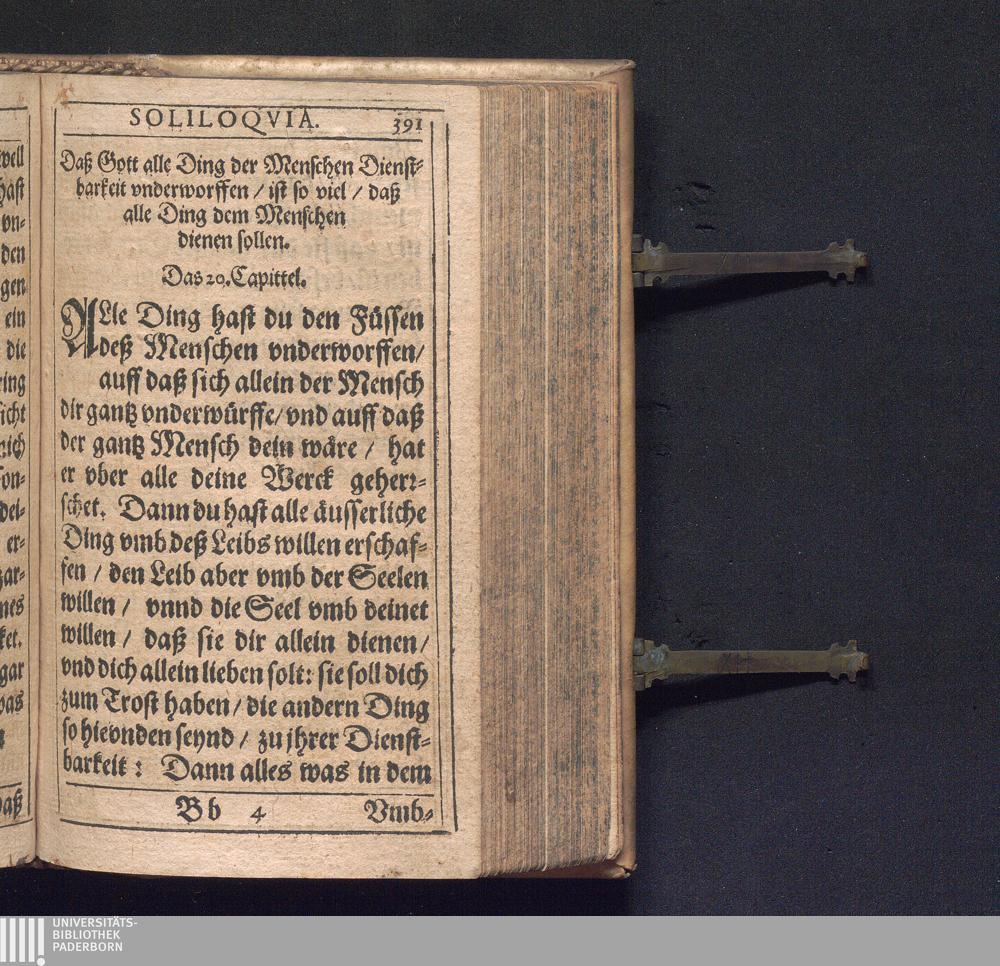 SOLILOQVIA. 391
Daß Gott alle Ding der Menschen Dienst-
barkeit vnderworffen / ist so viel / daß
alle Ding dem Menschen
dienen sollen.
Das 20. Capittel.
ALle Ding hast du den Füssen
deß Menschen vnderworffen /
auff daß sich allein der Mensch
dir gantz vnderwürffe / vnd auff daß
der gantz Mensch dein wäre / hat
er vber alle deine Werck geherr-
schet. Dann du hast alle äusserliche
Ding vmb deß Leibs willen erschaf-
fen / den Leib aber vmb der Seelen
willen / vnnd die Seel vmb deinet
willen / daß sie dir allein dienen /
vnd dich allein lieben solt: sie soll dich
zum Trost haben / die andern Ding
so hievnden seynd / zu jhrer Dienst-
barkeit: Dann alles was in dem
Bb 4 Vmb-
UNIVERSITÄTS-
BIBLIOTHEK
PADERBORN